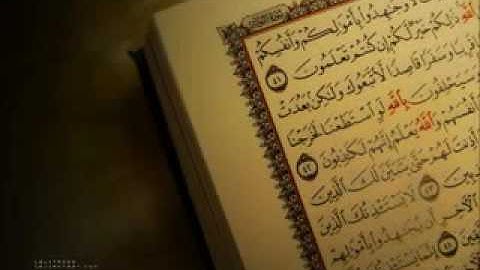 وَجَٰهِدُوا۟ بِأَمْوَٰلِكُمْ وَأَنفُسِكُمْ
اللَّهِ ذَٰلِكُمْ خَيْرٌ لَّكُمْ إِن كُنتُمْ تَعْلَمُونَ ٤١
قَرِيبًا وَسَفَرًا قَاصِدًا لَّاتَّبَعُوكَ وَلَٰكِنۢ بَعُدَتْ
وَسَيَحْلِفُونَ بِاللَّهِ لَوِ اسْتَطَعْنَا لَخَرَجْنَا
أَنفُسَهُمْ وَاللَّهُ يَعْلَمُ إِنَّهُمْ لَكَٰذِبُونَ ٤٢
أَذِنتَ لَهُمْ حَتَّىٰ يَتَبَيَّنَ لَكَ الَّذِينَ
٤٣ لَا يَسْتَـْٔذِنُكَ الَّذِينَ
الْـَٔاخِرِ أَن يُجَٰهِدُوا۟ بِأَمْوَٰلِهِمْ
٤٤ إِنَّمَا